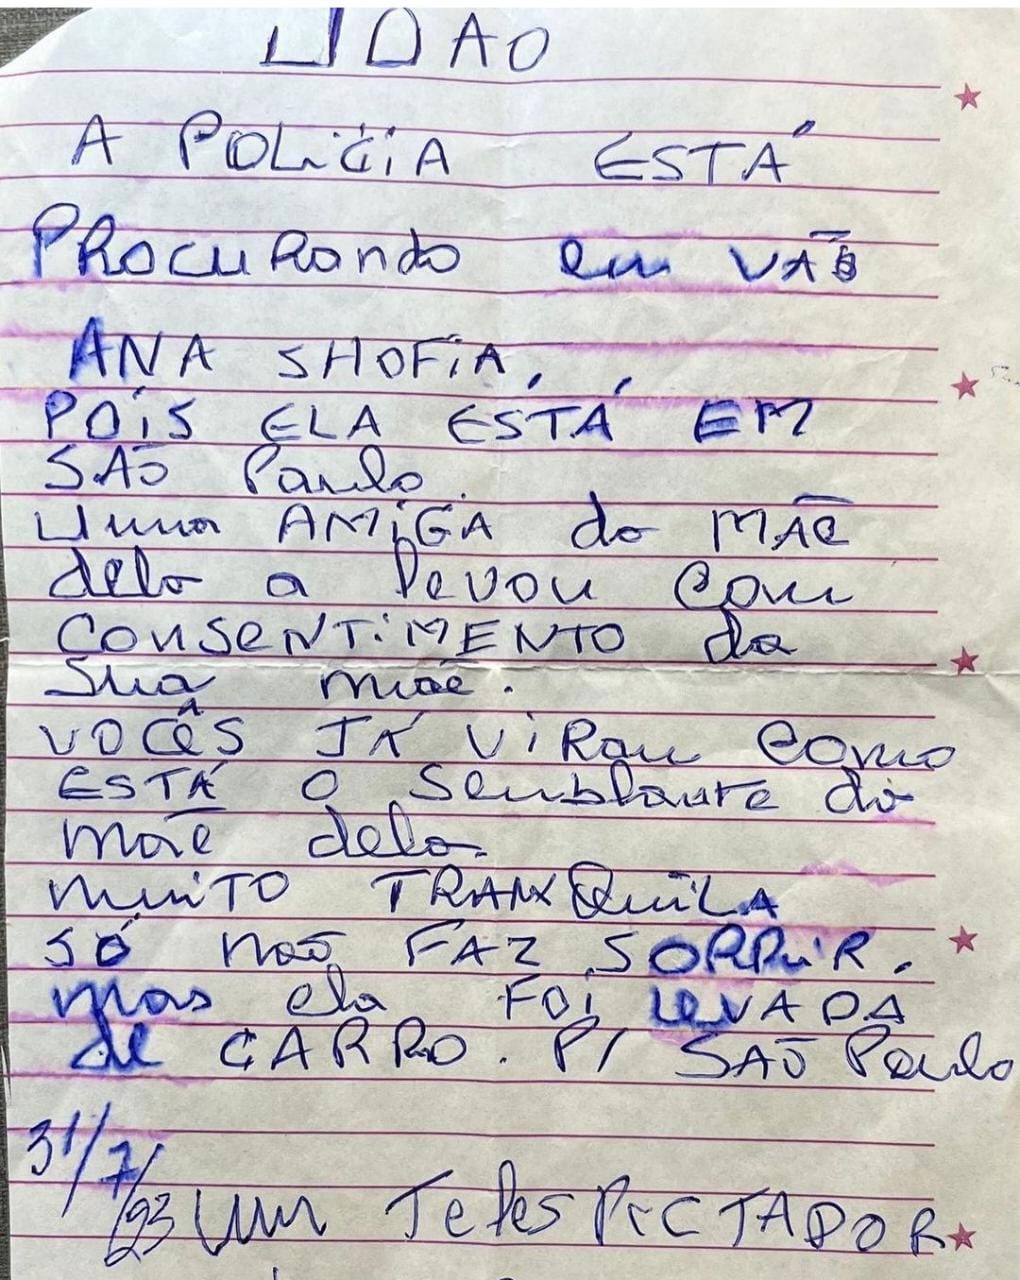 A POLICÍA ESTÁ
PROCURANDO em VÃO
ANA SHOFIA,
POÍS ELA ESTÁ EM
SÃO Paulo
Uma AMIGA da MÃE
dela a levou com
CONSENTIMENTO da
Sua mãe.
VOCÊS JÁ VIRAM COMO
ESTÁ O Semblante da
mãe dela.
muiTO TRANXQuiLA
SÓ não FAZ SORRiR.
mas ela FOi LEVADA
de CARRO. P/ SÃO Paulo
31/7/23 Um TelesPECTADOR